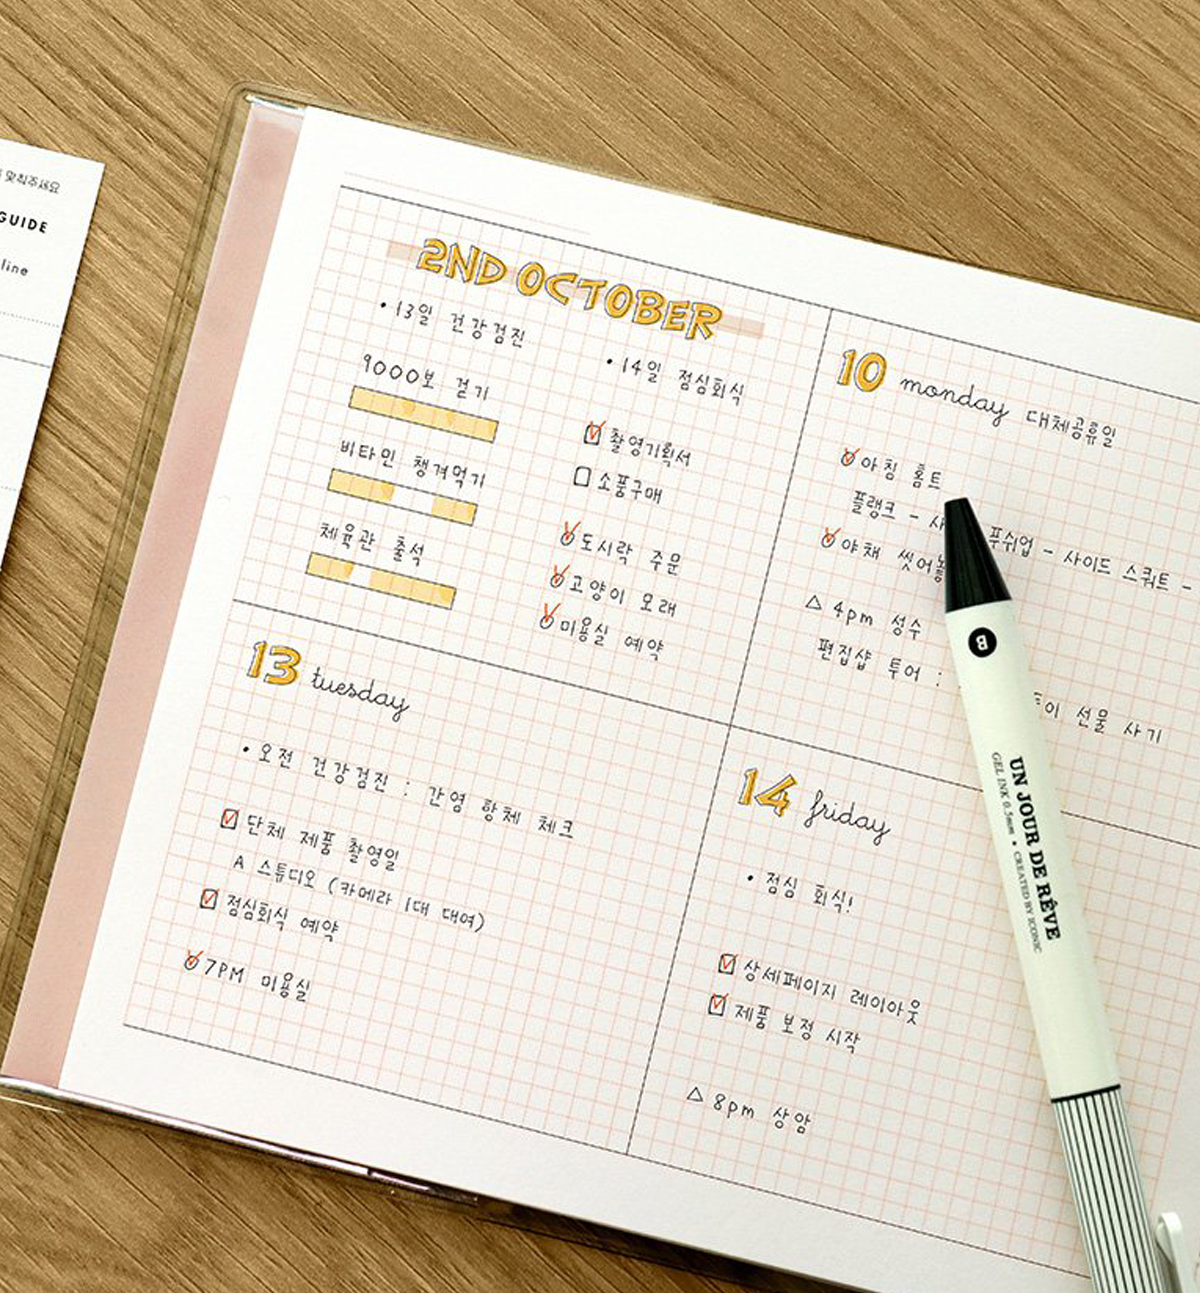 맞춰주세요
GUIDE
line
2ND OCTOBER
• 13일 건강검진
9000보 걷기
비타민 챙겨먹기
체육관 출석
• 14일 점심회식
촬영기획서
소품구매
도시락 주문
고양이 모래
미용실 예약
10 monday 대체공휴일
아침 홈트
플랭크 - 푸쉬업 - 사이드 스쿼트 -
야채 씻어놓
△ 4pm 성수
편집샵 투어 : 선물 사기
13 tuesday
• 오전 건강검진 : 간염 항체 체크
단체 제품 촬영일
A 스튜디오 (카메라 1대 대여)
점심회식 예약
7PM 미용실
14 friday
• 점심 회식!
상세페이지 레이아웃
제품 보정 시작
△ 8pm 상암
B
UN JOUR DE RÊVE
GEL INK 0.5mm • CREATED BY ICONIC